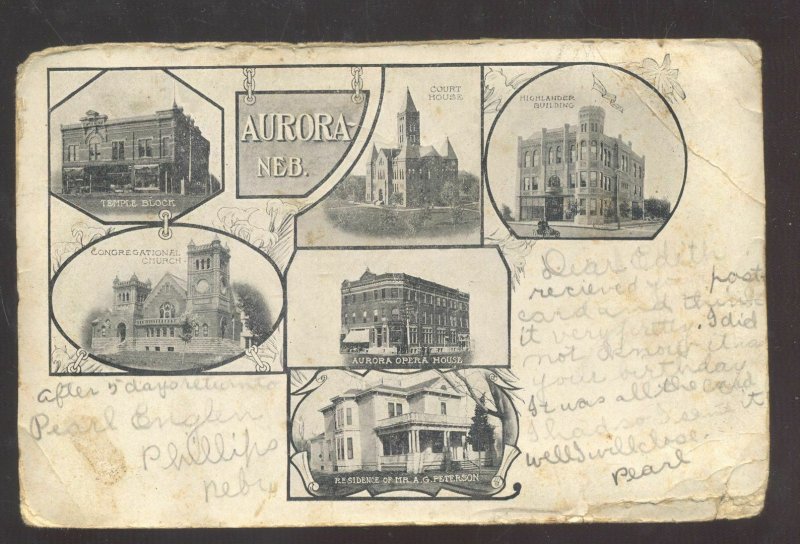 TEMPLE BLOCK
AURORA-
NEB.
COURT
HOUSE
HIGHLANDER
BUILDING
CONGREGATIONAL
CHURCH
AURORA OPERA HOUSE
RESIDENCE OF MR. A.G. PETERSON
Dear Edith
recieved post
card and think
it very pretty. I did
not know it was
your birthday
It was all the card
I had so I send it
well I will close.
Pearl
after 5 days return to
Pearl Englen
Phillips
Nebr